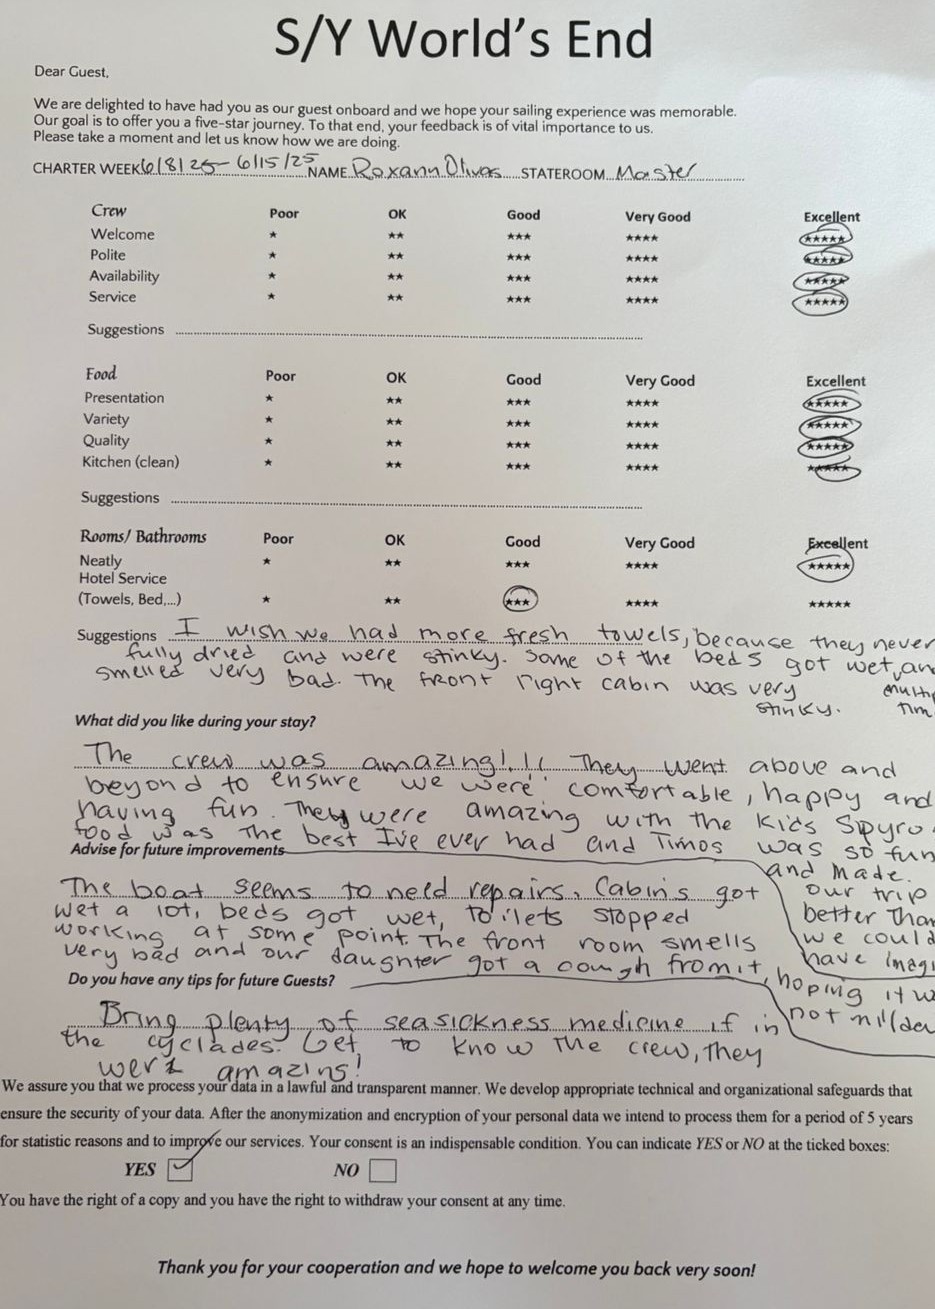 S/Y World's End
Dear Guest,
We are delighted to have had you as our guest onboard and we hope your sailing experience was memorable.
Our goal is to offer you a five-star journey. To that end, your feedback is of vital importance to us.
Please take a moment and let us know how we are doing.
CHARTER WEEK 6/8/25 - 6/15/25 NAME Roxann Olivas STATEROOM Master
Crew Poor OK Good Very Good Excellent
Welcome ★ ★★ ★★★ ★★★★ ★★★★★
Polite ★ ★★ ★★★ ★★★★ ★★★★★
Availability ★ ★★ ★★★ ★★★★ ★★★★★
Service ★ ★★ ★★★ ★★★★ ★★★★★
Suggestions
Food Poor OK Good Very Good Excellent
Presentation ★ ★★ ★★★ ★★★★ ★★★★★
Variety ★ ★★ ★★★ ★★★★ ★★★★★
Quality ★ ★★ ★★★ ★★★★ ★★★★★
Kitchen (clean) ★ ★★ ★★★ ★★★★ ★★★★★
Suggestions
Rooms/ Bathrooms Poor OK Good Very Good Excellent
Neatly ★ ★★ ★★★ ★★★★ ★★★★★
Hotel Service
(Towels, Bed,...) ★ ★★ ★★★ ★★★★ ★★★★★
Suggestions I wish we had more fresh towels, because they never
fully dried and were stinky. Some of the beds got wet, an
smelled very bad. The front right cabin was very
stinky.
multi
Tim
What did you like during your stay?
The crew was amazing!!! They went above and
beyond to ensure we were comfortable, happy and
having fun. They were amazing with the kids Spyro
food was the best Ive ever had and Timos was so fun
and made
our trip
better than
we could
have imagi
Advise for future improvements
The boat seems to need repairs. Cabins got
wet a lot, beds got wet, toilets stopped
working at some point. The front room smells
very bad and our daughter got a cough from it,
hoping it w
not milder
Do you have any tips for future Guests?
Bring plenty of seasickness medicine if in
the cyclades. Get to know the crew, they
were amazing!
We assure you that we process your data in a lawful and transparent manner. We develop appropriate technical and organizational safeguards that
ensure the security of your data. After the anonymization and encryption of your personal data we intend to process them for a period of 5 years
for statistic reasons and to improve our services. Your consent is an indispensable condition. You can indicate YES or NO at the ticked boxes:
YES ☑ NO ☐
You have the right of a copy and you have the right to withdraw your consent at any time.
Thank you for your cooperation and we hope to welcome you back very soon!